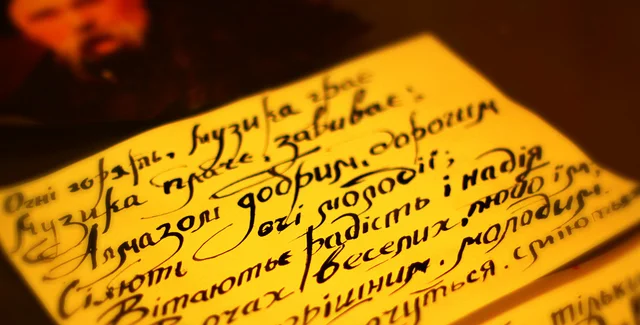 Огні горять, музика грає
Музика плаче, завиває;
Алмазом добрим, дорогим
Сіяють очі молодії;
Вітають радість і надія
В очах веселих, любо їм,
грішним. молодим.
сміються.
тільки